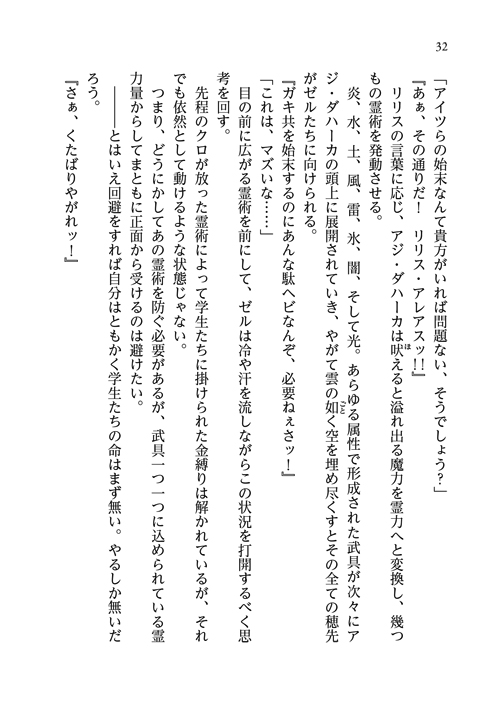 32
「アイツらの始末なんて貴方がいれば問題ない、そうでしょう？」
『あぁ、その通りだ！　リリス・アレアスッ!!』
　リリスの言葉に応じ、アジ・ダハーカは吠えると溢れ出る魔力を霊力へと変換し、幾つ
もの霊術を発動させる。
　炎、水、土、風、雷、氷、闇、そして光。あらゆる属性で形成された武具が次々にア
ジ・ダハーカの頭上に展開されていき、やがて雲の如く空を埋め尽くすとその全ての穂先
がゼルたちに向けられる。
『ガキ共を始末するのにあんな駄ヘビなんぞ、必要ねぇさッ！』
「これは、マズいな……」
　目の前に広がる霊術を前にして、ゼルは冷や汗を流しながらこの状況を打開するべく思
考を回す。
　先程のクロが放った霊術によって学生たちに掛けられた金縛りは解かれているが、それ
でも依然として動けるような状態じゃない。
　つまり、どうにかしてあの霊術を防ぐ必要があるが、武具一つ一つに込められている霊
力量からしてまともに正面から受けるのは避けたい。
　――とはいえ回避をすれば自分はともかく学生たちの命はまず無い。やるしか無いだ
ろう。
『さぁ、くたばりやがれッ！』